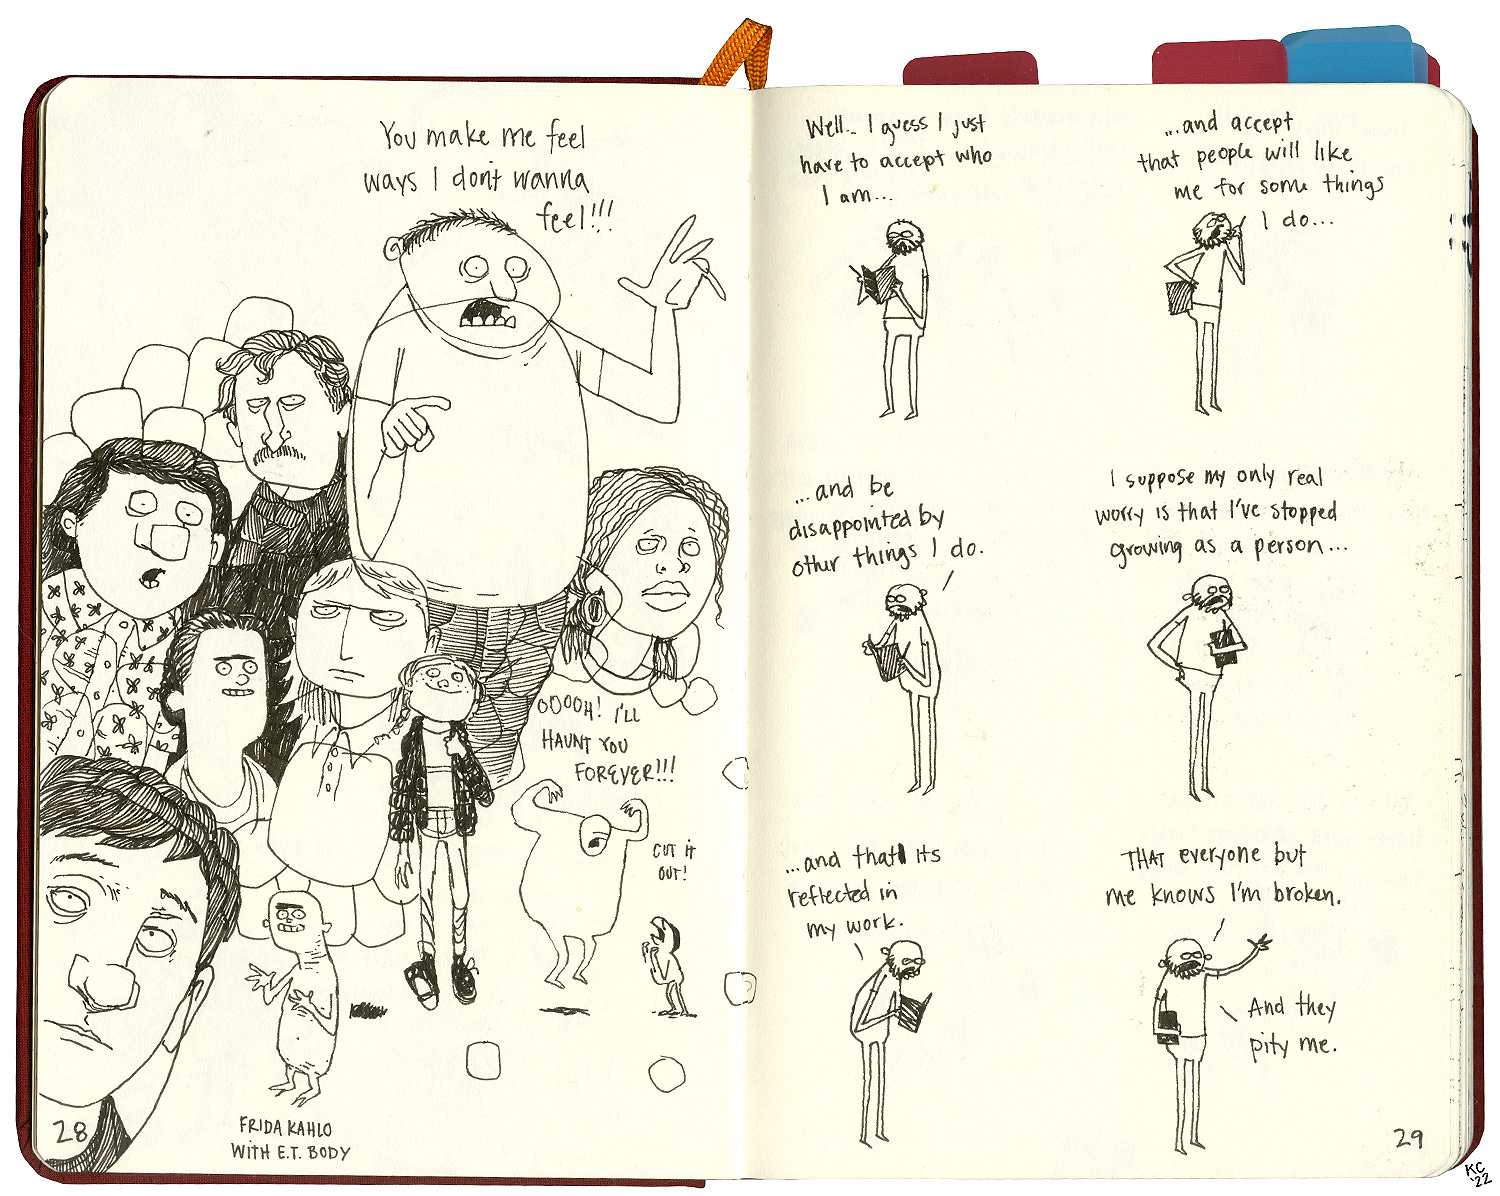 You make me feel
ways I don't wanna
feel!!!
OOOOH! I'LL
HAUNT YOU
FOREVER!!!
CUT IT
OUT!
FRIDA KAHLO
WITH E.T. BODY
28
Well.. I guess I just
have to accept who
I am...
...and accept
that people will like
me for some things
I do...
...and be
disappointed by
other things I do.
I suppose my only real
worry is that I've stopped
growing as a person...
...and that its
reflected in
my work.
THAT everyone but
me knows I'm broken.
And they
pity me.
29
KC
'22